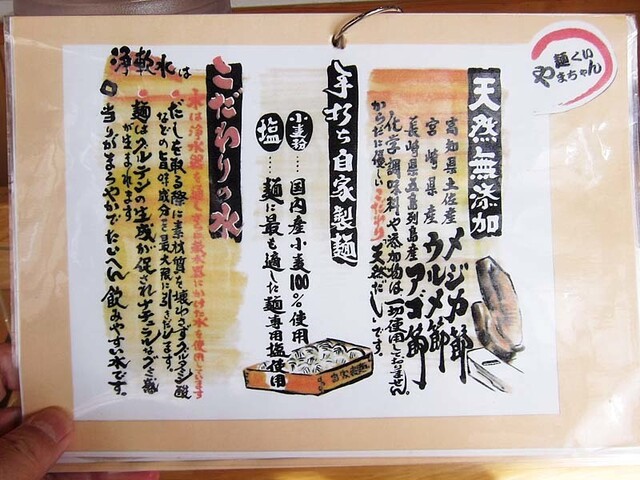 麺くい
やまちゃん
天然無添加
高知県土佐産 メジカ節
宮崎県産 ウルメ節
長崎県五島列島産 アゴ節
化学調味料や添加物は一切使用しておりません。
からだに優しいこだわり天然だしです。
手打ち自家製麺
小麦粉…国内産小麦100%使用
塩…麺に最も適した麺専用塩使用
こだわりの水
水は浄水器を通しさらに軟水器にかけた水を使用しています
浄軟水は
だしを取る際に素材質を壊わさずグルタミン酸
などの旨味成分を最大限に引きだします。
麺はグルテンの生成が促されナチュラルなコシ感
が生まれます。
当りがまろやかでたいへん飲みやすい水です。